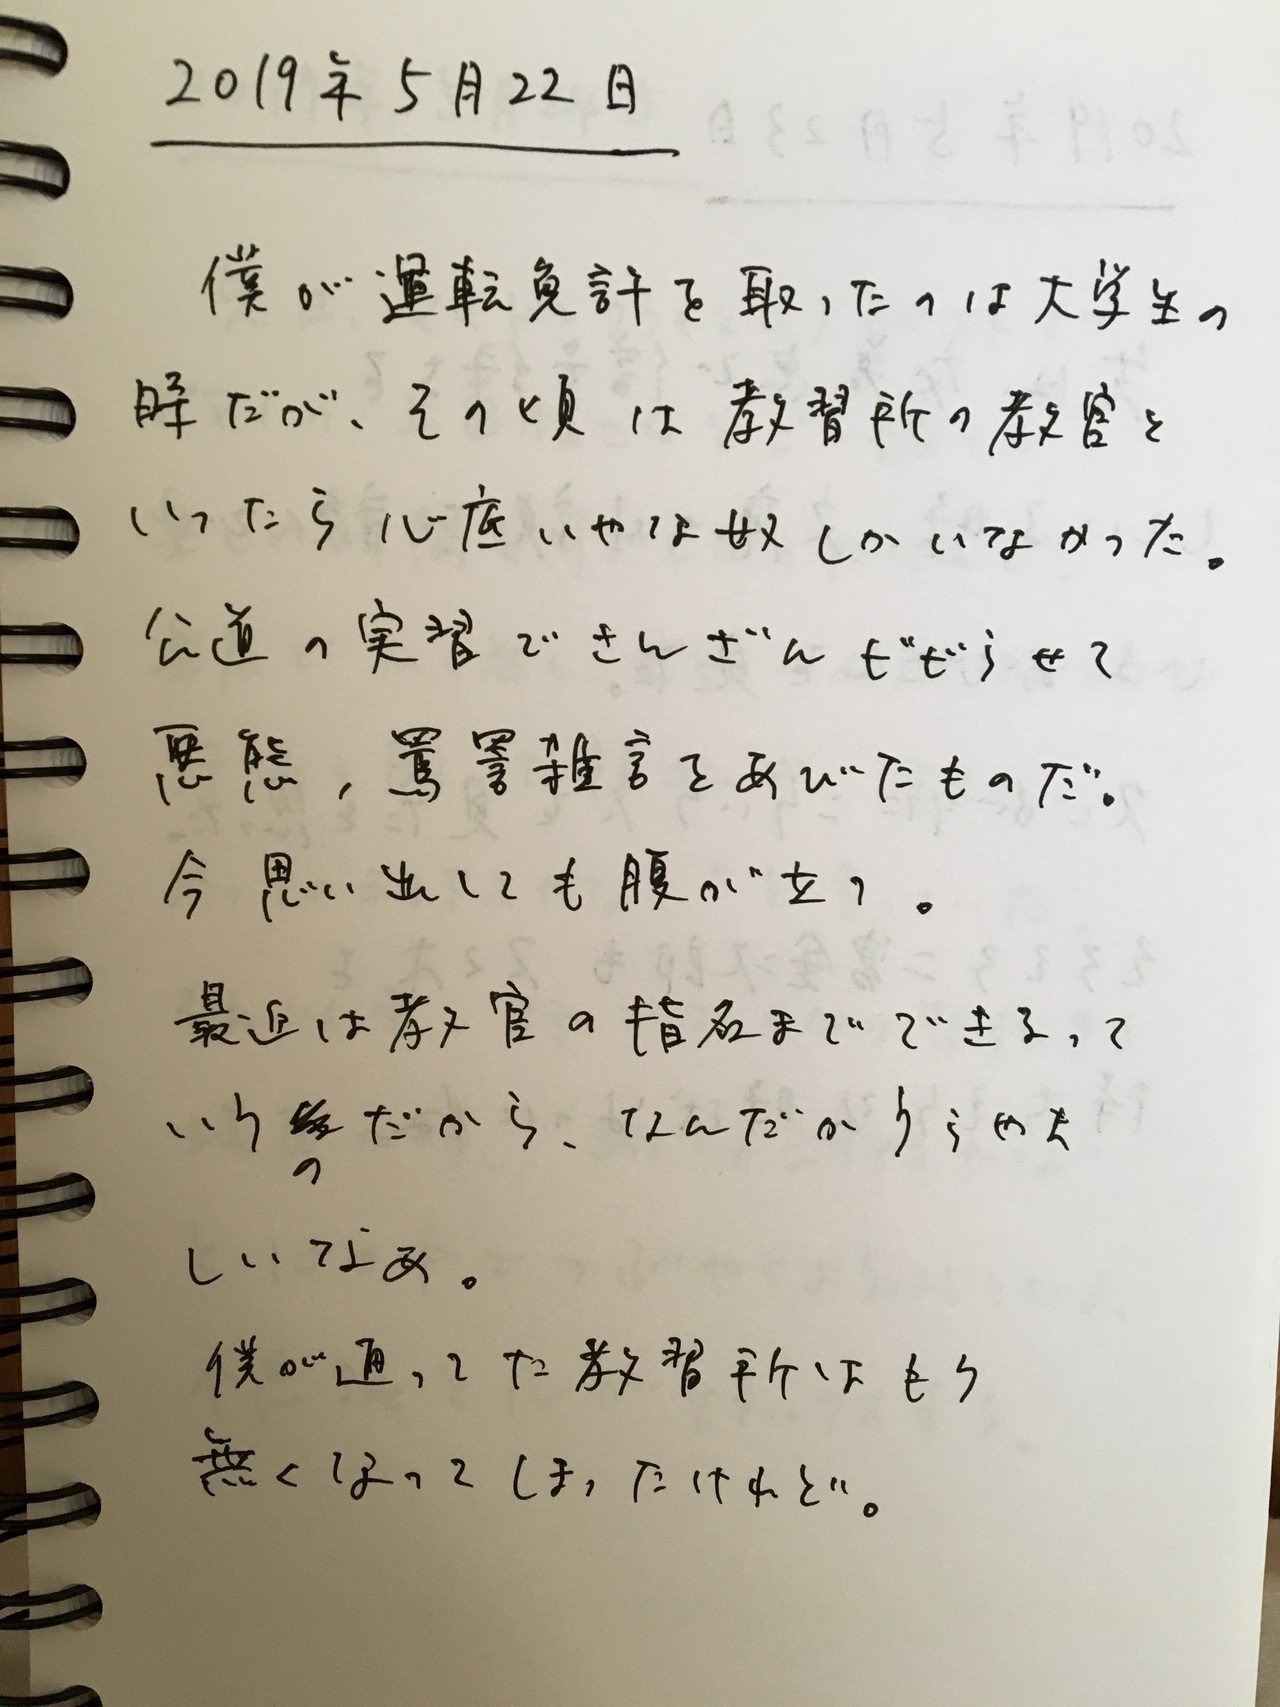 2019年5月22日
僕が運転免許を取ったのは大学生の
時だが、その頃は教習所の教官と
いったら心底いやな奴しかいなかった。
公道の実習でさんざん
悪態、罵詈雑言をあびたものだ。
今思い出しても腹が立つ。
最近は教官の指名までできるって
いうのだから、なんだかうらやま
しいなあ。
僕が通ってた教習所はもう
無くなってしまったけれど。